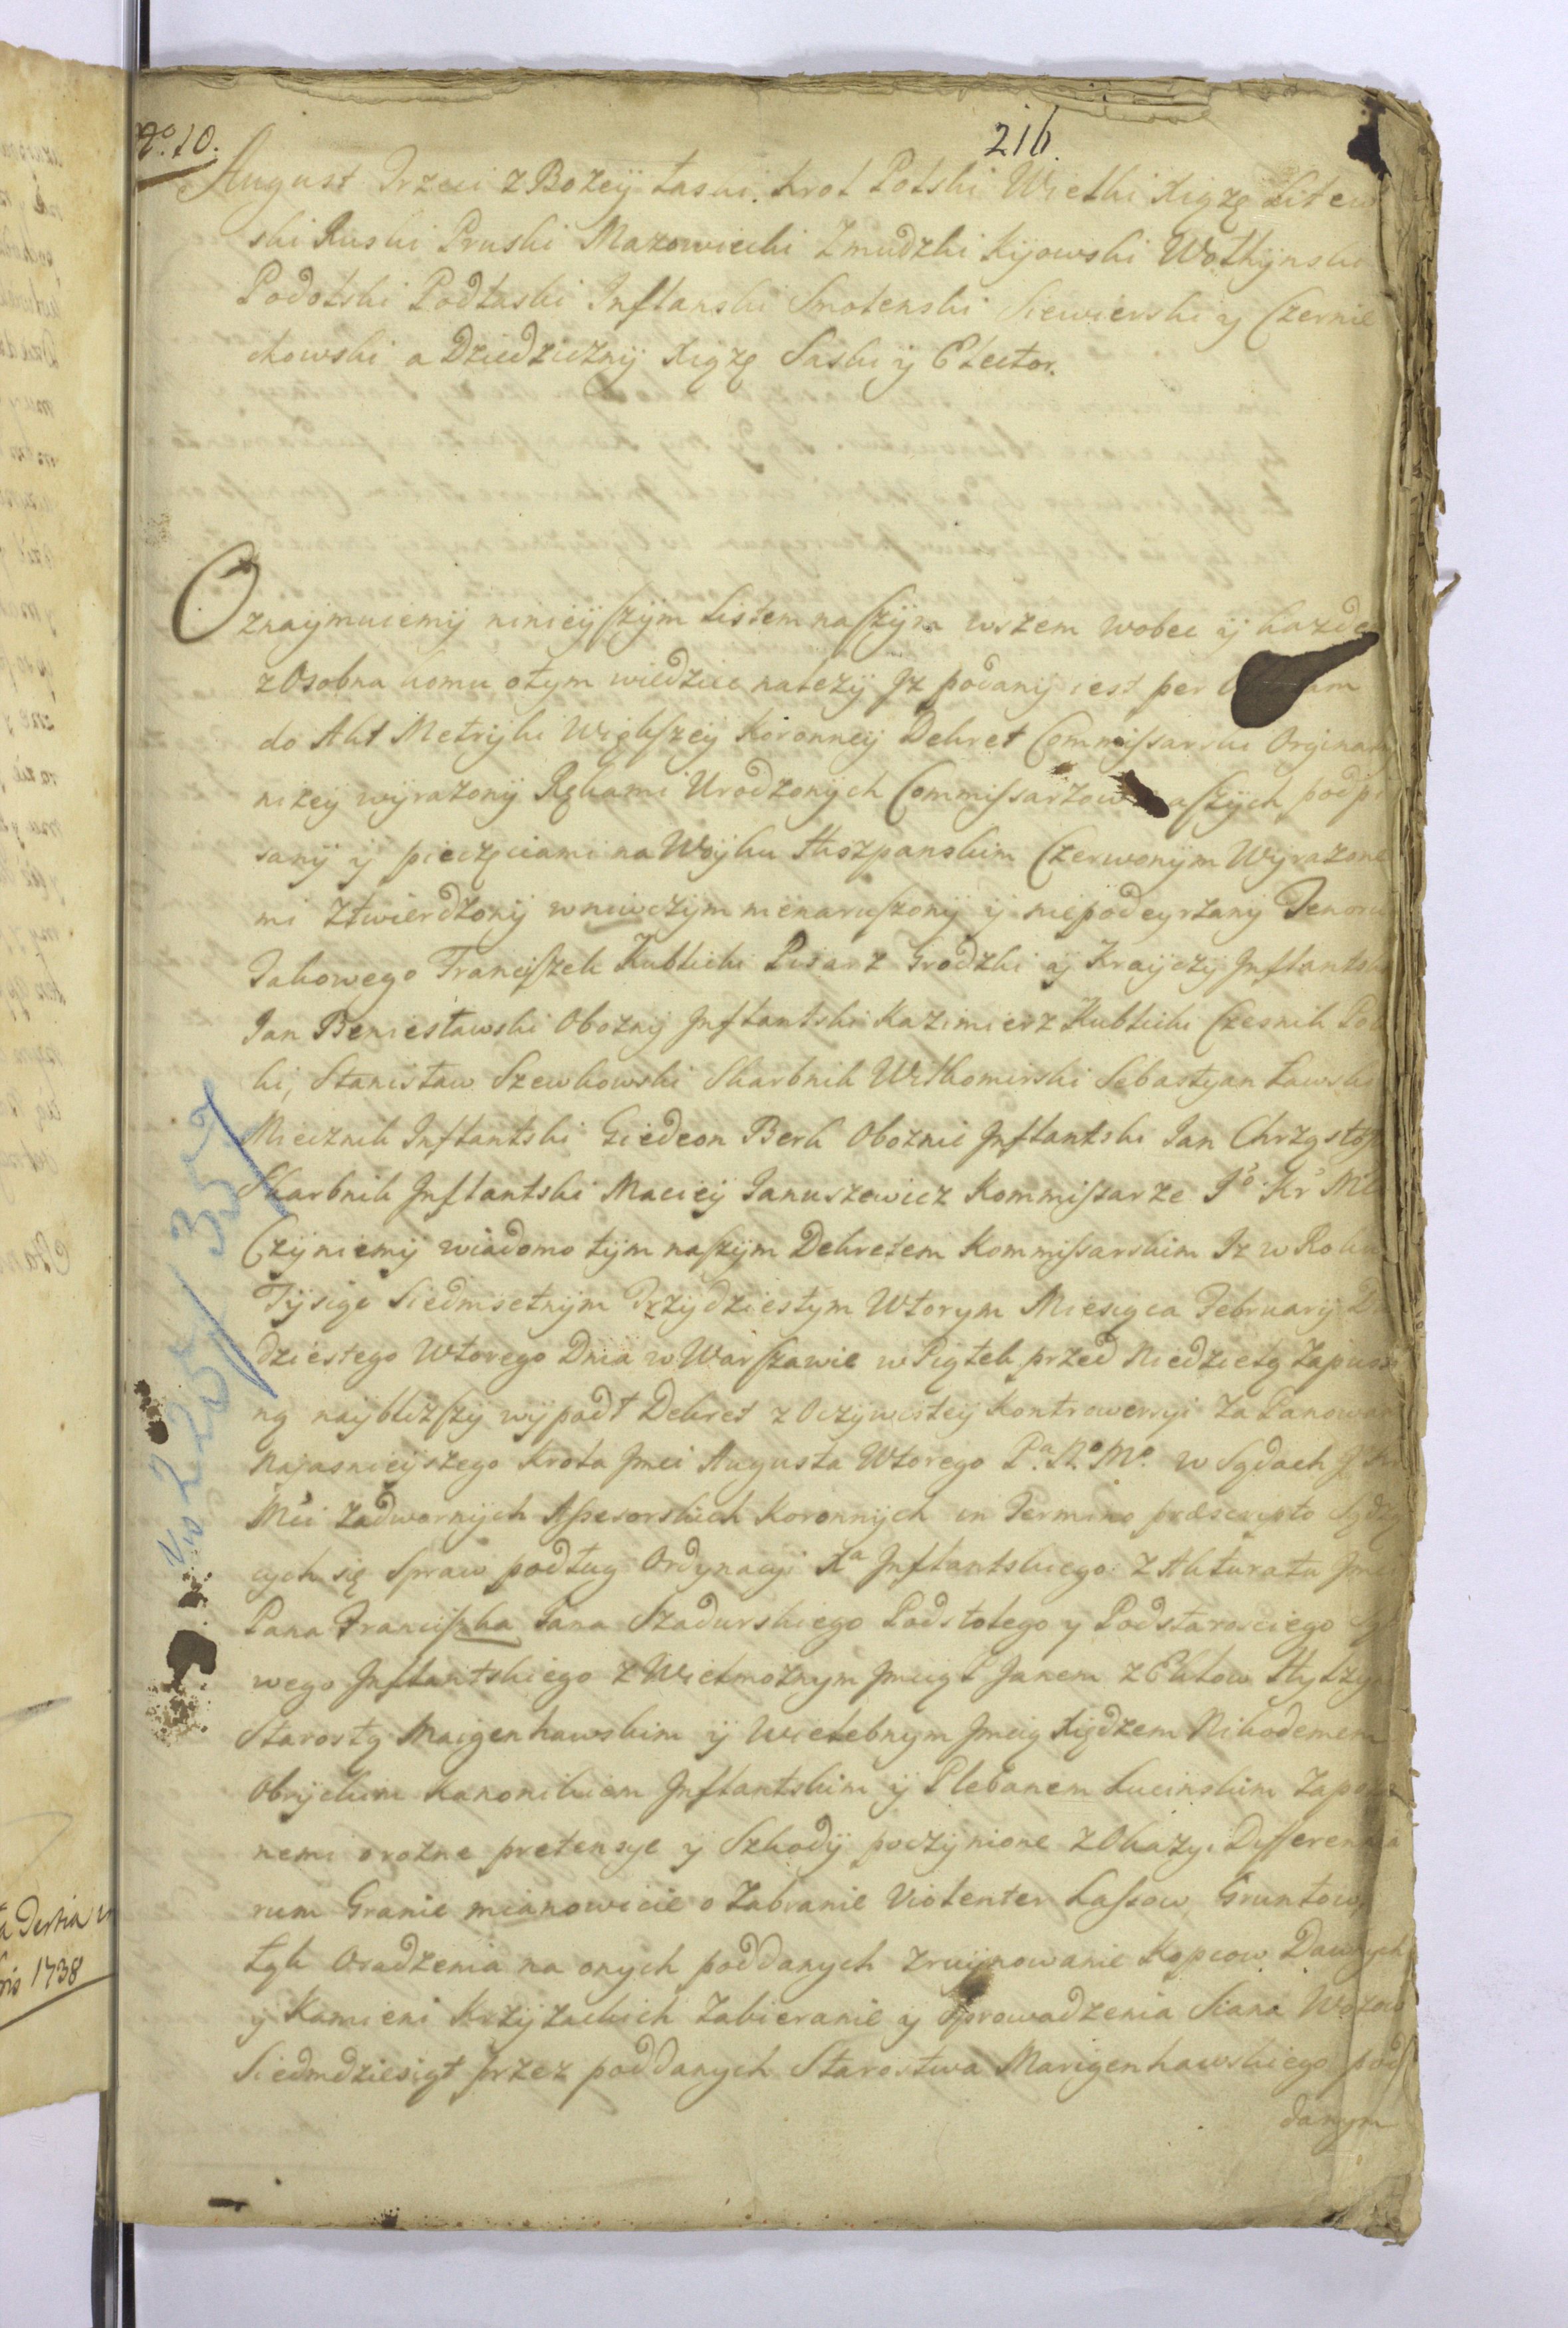 No. 10.
216.
August Trzeci z Bozeÿ Łaski. Krol Polski Wielki Xiążę Litew
ski Ruski Pruski Mazowiecki Zmudzki Kijowski Wołhÿnski
Podolski Podlaski Inflanski Smolenski Siewierski y Czernie
chowski a Dziedzicznÿ Xiąze Saski ÿ Elector.
Oznaÿmuiemÿ ninieÿszÿm Listem naszÿm wszem wobec ÿ kazde
z Osobna komu o tym wiedziec nalezÿ Iz podanÿ iest per
do Akt Metrÿki Większeÿ Koronneÿ Dekret Commissarski Orginal
nizeÿ wÿrazonÿ Rękami Urodzonÿch Commissarzow aszÿch podpi
sanÿ ÿ pieczęciami na Woÿku Hiszpanskim Czerwonÿm Wÿrazone
mi Ztwierdzonÿ w niwczym nienaruszonÿ ÿ niepodeyrzanÿ Tenoru
Takowego Franciszek Kublicki Pisarz Grodzki ÿ Kraÿczÿ Inflantski
Jan Beniesławski Obozny Inflantski Kazimierz Kublicki Czesnik
ki, Stanisław Szewkowski Skarbnik Wiłkomirski Sebastyan Ławski
Miecznik Inflantski Giedeon Berk Oboznic Inflantski Jan Chrząstof
Skarbnik Inflantski Macieÿ Januszewicz Kommissarze Jo Kr Mci
Czÿniemÿ wiadomo tÿm naszÿm Dekretem Kommissarskim Iz w Roku
Tÿsiąc Siedmsetnÿm Trzÿdziestym Wtorym Miesiąca February Dw
dziestego Wtorego Dnia w Warszawie w Piątek przed Niedzielą Zapust
ną naÿblizszÿ wÿpadł Dekret z Oczÿwisteÿ Kontrowersyi Za Panowan
Najasnieÿszego Krola Jmci Augusta Wtorego Pa. No. Mo. w Sądach J Kr
Mci Zadwornÿch Assesorskich Koronnÿch in Termino præscripto Sądzą
cych się Spraw podług Ordynacyi Xa Inflantskiego. Z Akturatu Jmci
Pana Franciszka Jana Szadurskiego Podstolego y Podstarosciego Sąd
wego Inflantskiego z Wielmoznym Jmcią P Janem z Ekłow Hylzyn
Starostą Maigenhawskim ÿ Wielebnym Jmcią Xiędzem Nikodemem
Kanonikiem Inflantskim ÿ Plebanem Lucinskim Zapoz
nemi o rozne pretensye y Szkodÿ poczÿnione z Okazyi Differencia
rum Granic mianowicie o Zabranie Violenter Lassow Gruntow,
Łąk Osadzenia na onych poddanych Zruÿnowanie Kopcow Dawnych
y Kamieni Krzÿzackich Zabieranie ÿ Sprowadzenia Siana Wozow
Siedmdziesiąt przez poddanych Starostwa Marigenhawskiego pod
danym
a Tertia
ris 1738